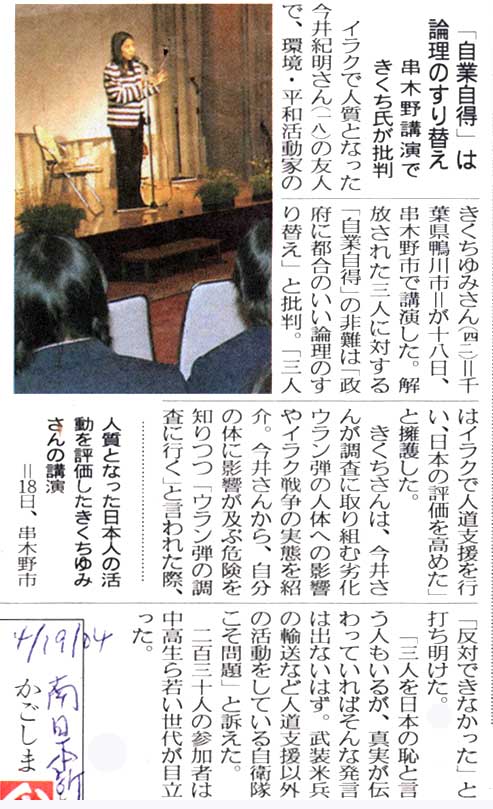 「自業自得」は
論理のすり替え
串木野講演で
きくち氏が批判
イラクで人質となった
今井紀明さん(一八)の友人
で、環境・平和活動家の
きくちゆみさん(四二)=千
葉県鴨川市=が十八日、
串木野市で講演した。解
放された三人に対する
「自業自得」の非難は「政
府に都合のいい論理のす
り替え」と批判。「三人
はイラクで人道支援を行
い、日本の評価を高めた」
と擁護した。
きくちさんは、今井さ
んが調査に取り組む劣化
ウラン弾の人体への影響
やイラク戦争の実態を紹
介。今井さんから、自分
の体に影響が及ぶ危険を
知りつつ「ウラン弾の調
査に行く」と言われた際、
「反対できなかった」と
打ち明けた。
「三人を日本の恥と言
う人もいるが、真実が伝
わっていればそんな発言
は出ないはず。武装米兵
の輸送など人道支援以外
の活動をしている自衛隊
こそ問題」と訴えた。
二百三十人の参加者は
中高生ら若い世代が目立
った。
人質となった日本人の活
動を評価したきくちゆみ
さんの講演
=18日、串木野市
4/19/04
南日本新
かごしま